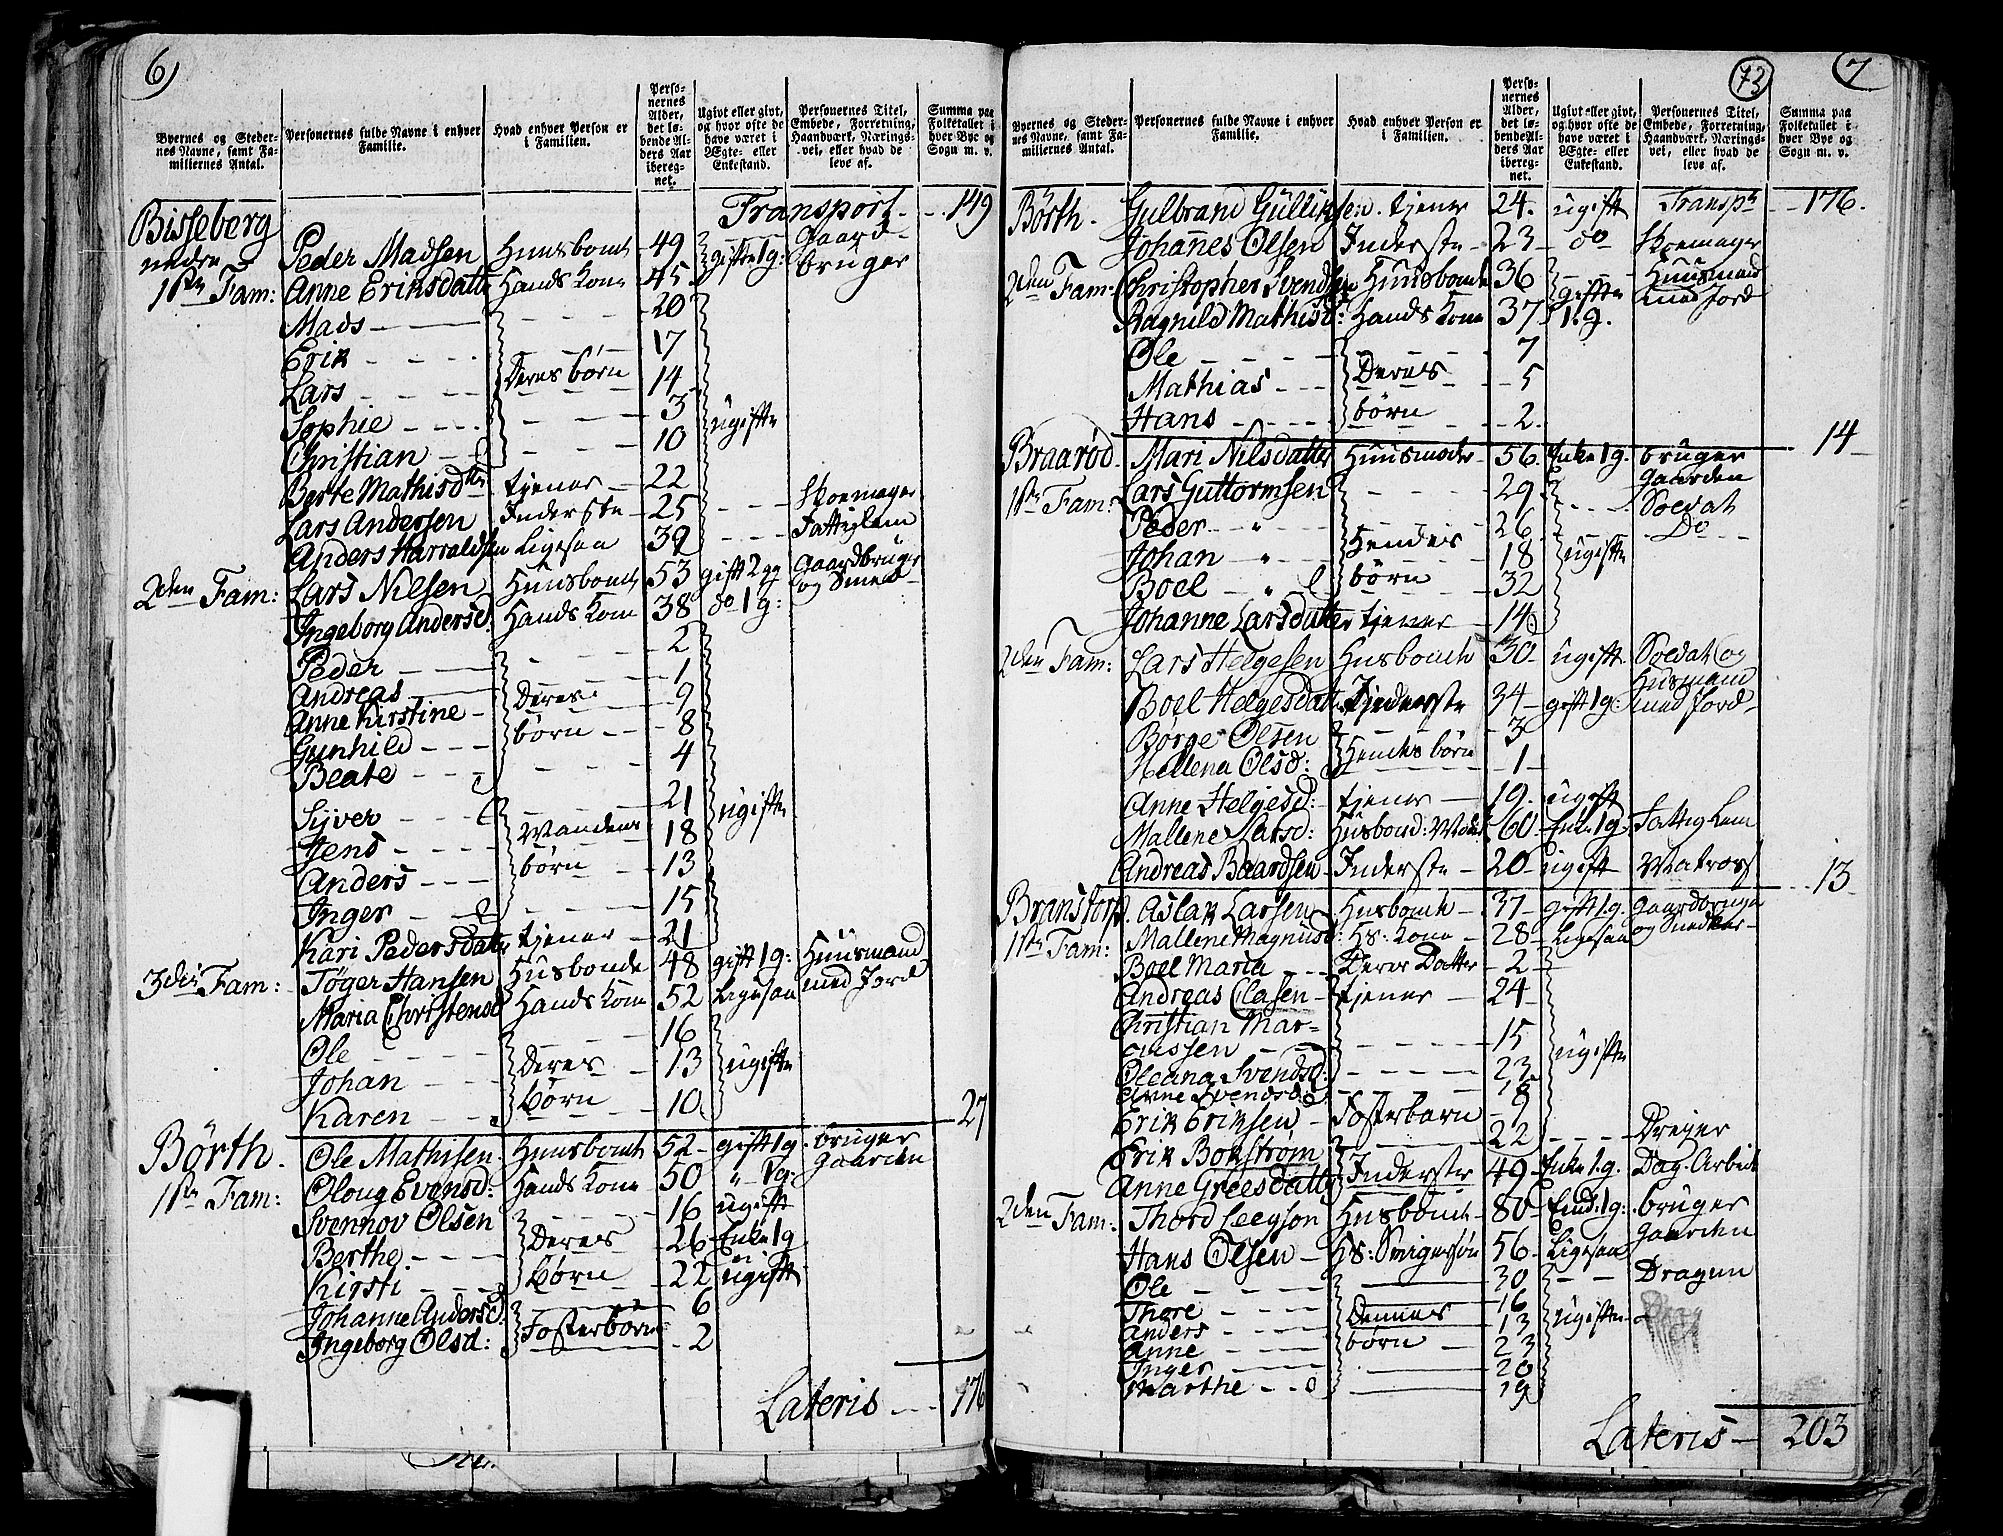 6)
Byernes og Stedernes Navne, samt Familiernes Antal. | Personernes fulde Navne i enhver Familie. | Hvad enhver Person er i Familien. | Personernes Alder, det løbende Alders Aar iberegnet. | Ugivt eller givt, og hvor ofte de have været i Ægte- eller Enkestand. | Personernes Titel, Embede, Forretning, Haandværk, Næringsvei, eller hvad de leve af. | Summa paa Folketallet i hver Bye og Sogn m. v.
Transport - - 149
Bisseberg nedre 1ste Fam: Peder Madsen Huusbonde 49 gifte 1 g: Gaardbruger
Anne Eriksdatter Hands Kone 45
Mads 20
Erik 17
Lars Deres børn 14
Sophie 3 ugifte
Christian 10
Berte Mathisdtr tjener 22
Lars Andersen Inderste 25 Skoemager
Anders Harraldsen Ligesaa 39 Fattiglem
2den Fam: Lars Nilsen Huusbonde 53 gift 2 gg Gaardbruger og Smed
Ingeborg Andersd. Hands Kone 38 do 1 g:
Peder 2
Andreas 1
Anne Kirstine Deres 9
Gunhild børn 8
Beate 4
Syver 21 ugifte
Jens Mandens 18
Anders børn 13
Inger 15
Kari Pedersdatter tjener 21
3die Fam: Tøger Hansen Husbonde 48 gift 1 g: Huusmand
Maria Christensd Hands Kone 52 Ligesaa med Jord
Ole 16
Johan Deres 13 ugifte
Karen Børn 10 27
Børth. 1ste Fam: Ole Mathisen Huusbonde 52 gift 1 g bruger
Oloug Evensd: Hands Kone 50 " 1 g: Gaarden
Svennov Olsen 16 ugift
Berthe Deres 26 Enke 1 g
Kirsti Børn 22 ugift
Johanne Andersd: 6
Ingeborg Olsd: Fosterbørn 2
Lateris - - 176
73
7
Byernes og Stedernes Navne, samt Familiernes Antal. | Personernes fulde Navne i enhver Familie. | Hvad enhver Person er i Familien. | Personernes Alder, det løbende Alders Aar iberegnet. | Ugivt eller givt, og hvor ofte de have været i Ægte- eller Enkestand. | Personernes Titel, Embede, Forretning, Haandværk, Næringsvei, eller hvad de leve af. | Summa paa Folketallet i hver Bye og Sogn m. v.
Børth. Gulbrand Gullingsen tjener 24. ugift Transpt - - 176.
Johannes Olsen Inderste 23 do Skoemager
2den Fam: Christopher Svendsen Huusbonde 36 gifte Huusmand
Ragnild Mathisd: Hands Kone 37 1. g. med Jord
Ole 7
Mathias Deres 5
Hans børn 2. 14
Braarød. Mari Nilsdatter Huusmoder 56. Enke 1 g. bruger Gaarden
1ste Fam: Lars Guttormsen 29 Soldat
Peder " 26 Do
Johan " Hendes 18 ugifte
Boel " børn 32
Johanne Larsdatter tjener 14
2den Fam: Lars Helgesen Husbonde 30 ugift Soldat og Husmand
Boel Helgesdatter Inderste 34 gift 1 g: med Jord
Børge Olsen 3
Hellena Olsd: Hendes børn 1
Anne Helgesd: tjener 19. ugift
Mallene Larsd: Husbond: Moder 60 Enke 1 g. Fattig Lem
Andreas Baardsen Inderste 20 ugift Matros 13
Branstorp. Aslak Larsen Husbonde 37 gift 1. g. Gaardbruger
1ste Fam: Mallene Magnusd: Hs: Kone 28 Ligesaa og Snedker
Boel Maria Deres Datter 2
Andreas Clasen tjener 24
Christian Marcussen 15 ugifte
Oleana Svendsd: 23
Anne Svendsd: 18
Erik Eriksen Fosterbarn 9
Erik Bokstrøm 22 Drejer
Anne Greesdatter Inderste 49 Enke 1. g. Dag-Arbeid
2den Fam: Thord Leegson Husbonde 80 Enk. 1 g: bruger
Hans Olsen Hs: Svigersøn 56. Ligesaa Gaarden
Ole 30 Dragun
Thore 16
Anders Dennes 13 ugifte
Anne børn 23
Inger 20
Marthe 19
Lateris 203